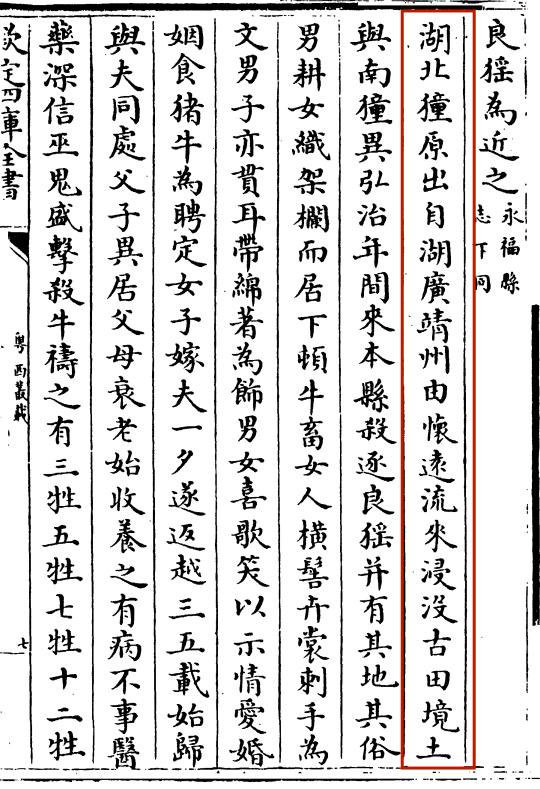 良猺為近之永福縣志下同
湖北獞原出自湖廣靖州由懷遠流來浸沒古田境土
與南獞異弘治年間來本縣殺逐良猺并有其地其俗
男耕女織架欄而居下頓牛畜女人橫髻卉裳刺手為
文男子亦貫耳帶綿著為飾男女喜歌笑以示情愛婚
姻食猪牛為聘定女子嫁夫一夕遂返越三五載始歸
與夫同處父子異居父母衰老始收養之有病不事醫
藥深信巫鬼盛擊殺牛禱之有三牲五牲七牲十二牲
欽定四庫全書
粤西叢載
七